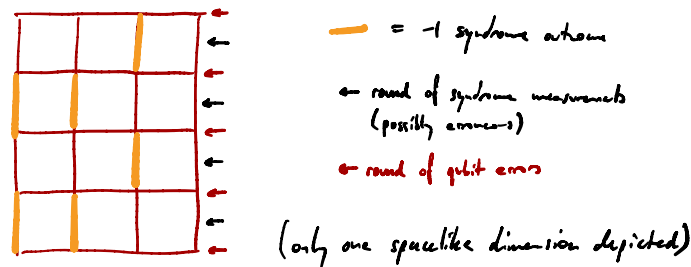 = -1 syndrome outcome
← round of syndrome measurements
(possibly erroneous)
← round of qubit errors
(only one spacelike dimension depicted)